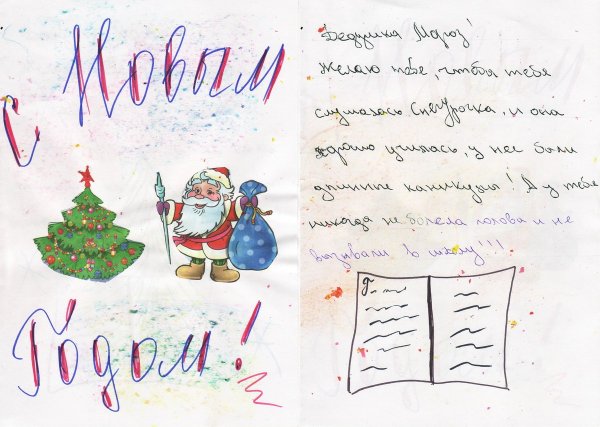 С Новым
Годом!
Дедушка Мороз!
Желаю тебе, чтобы тебя
слушалась Снегурочка, и она
хорошо училась, у нее были
длинные каникулы! А у тебя
никогда не болела голова и не
вызывали в школу!!!